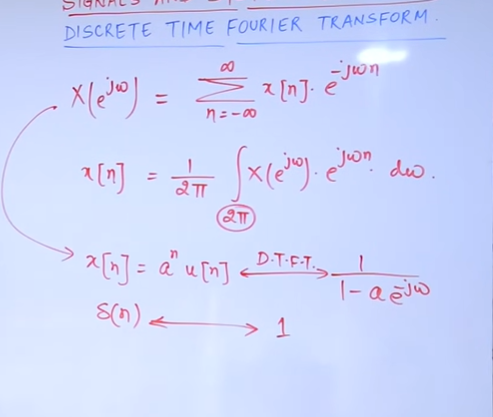 SIGNALS AND
DISCRETE TIME FOURIER TRANSFORM.
X(e^{jω}) = ∑_{n=-∞}^{∞} x[n]. e^{-jωn}
x[n] = 1/2π ∫_{2π} X(e^{jω}). e^{jωn}. dω.
x[n] = a^n u[n] ⟷ D.T.F.T. 1/(1-ae^{-jω})
δ(n) ⟷ 1